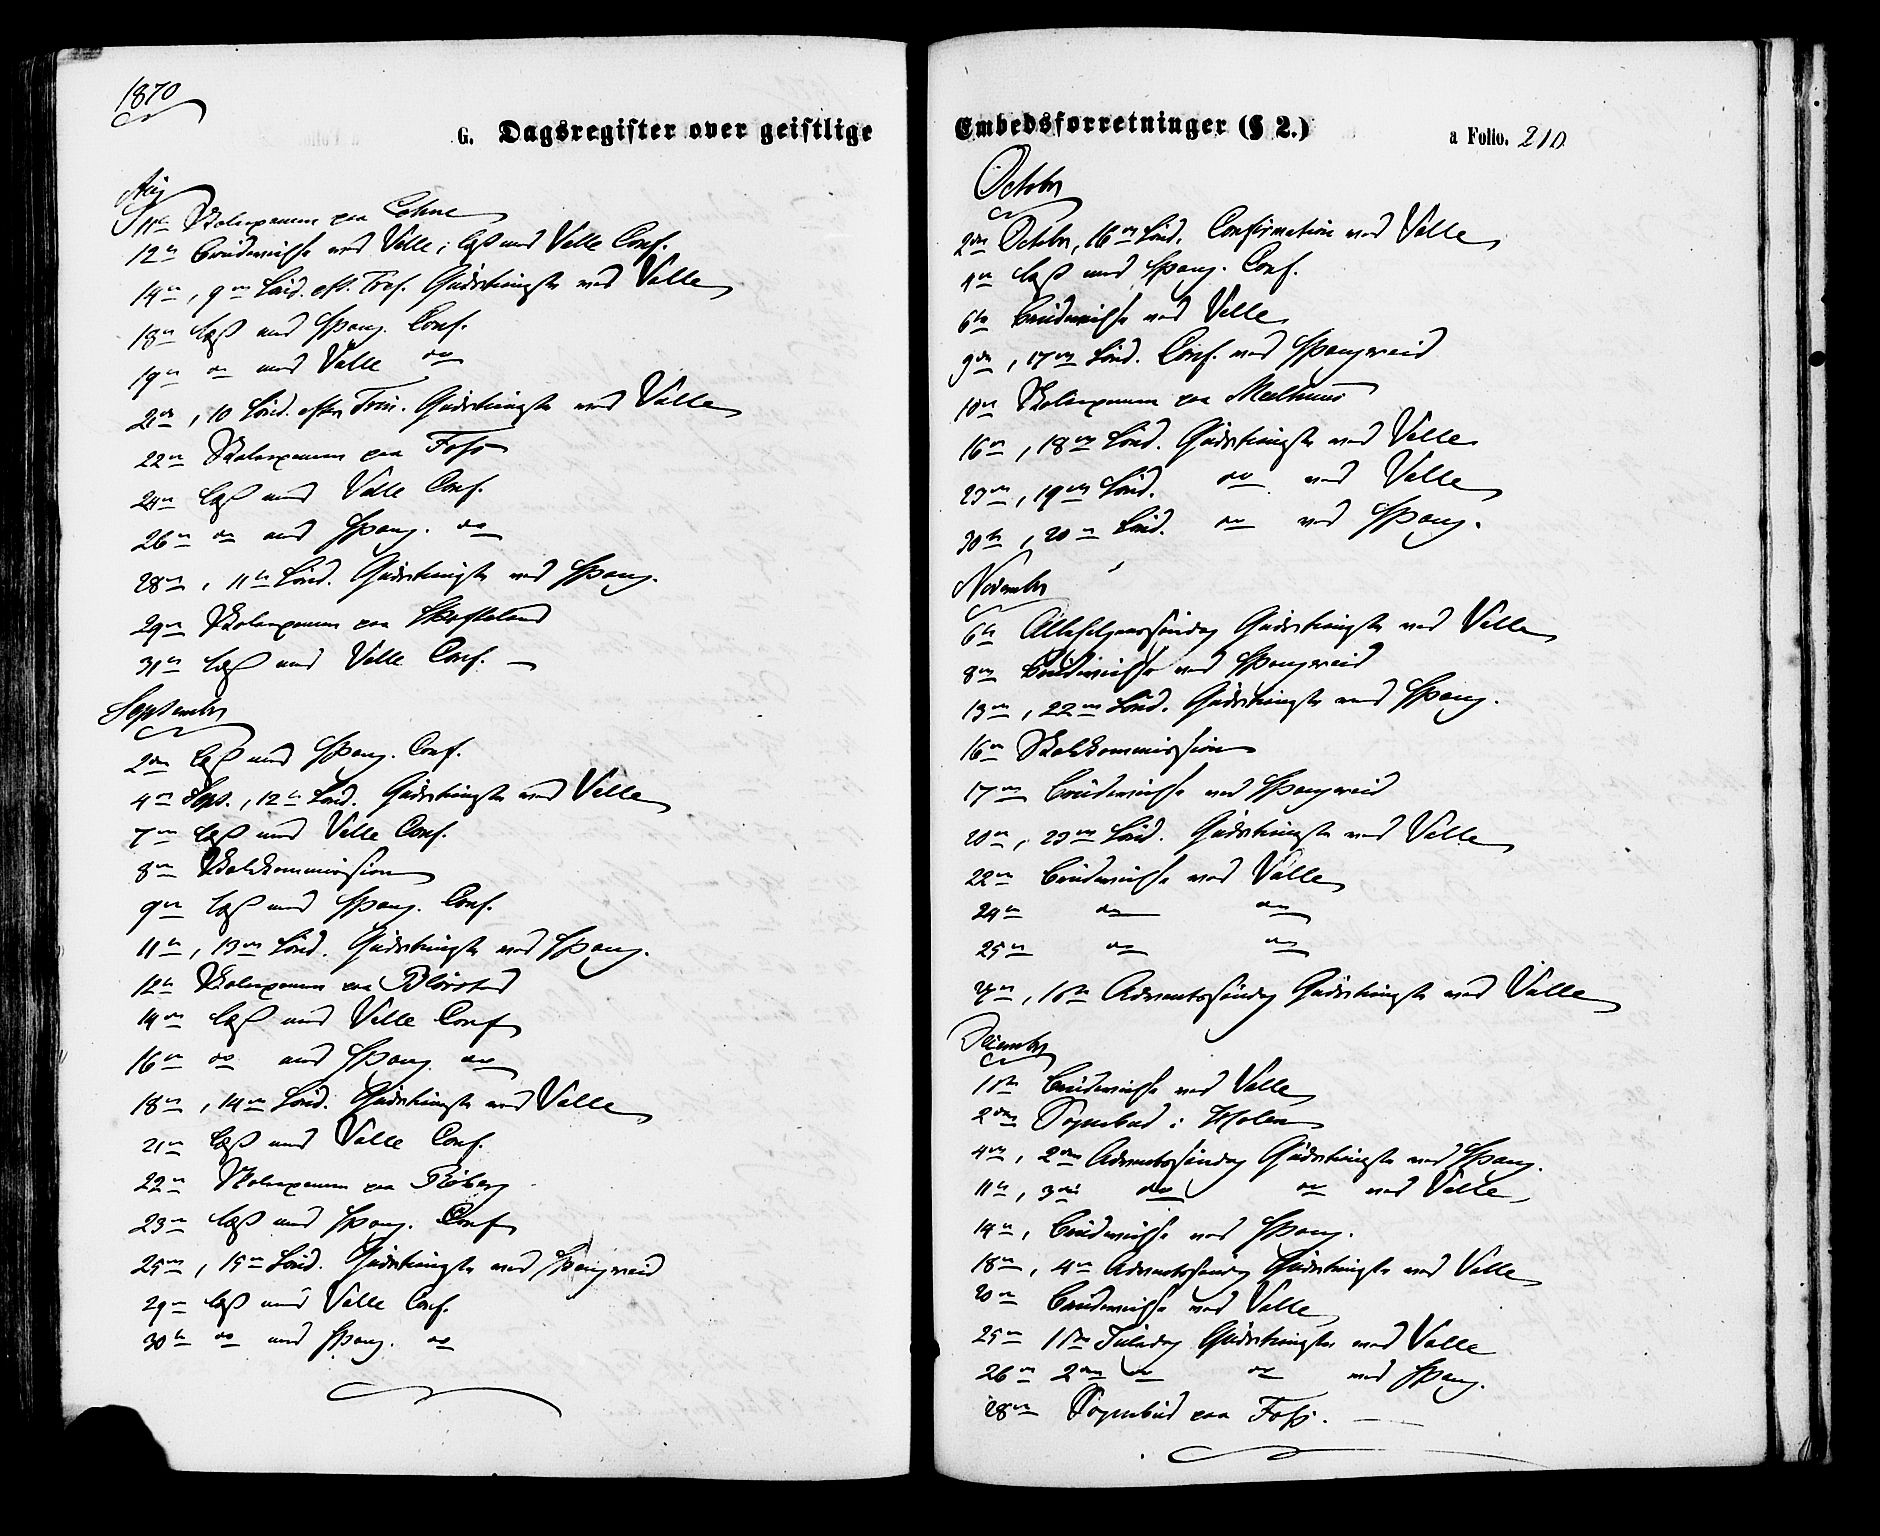 1870
G. Dagsregister over geistlige
Aug
11te Skoleexamen paa
12te Brudevielse ved Valle; læst med Valle Conf.
14de, 9de Sönd. eft. Tref. Gudstjeneste ved Valle
18de læst med Spang. Conf.
19de do med Valle do
21de, 10 Sönd. efter Trin. Gudstjeneste ved Valle
22de Skoleexamen paa Foss
24de læst med Valle Conf.
26de do med Spang. do
28de, 11te Sönd. Gudstjeneste ved Spang.
29de Skoleexamen paa
31te læst med Valle Conf.
September
2den læst med Spang. Conf.
4de Sept., 12te Sönd. Gudstjeneste ved Valle
7de læst med Valle Conf.
8de Skolekommission
9de læst med Spang. Conf.
11te, 13de Sönd. Gudstjeneste ved Spang.
12te Skoleexamen paa
14de læst med Valle Conf
16de do med Spang. do
18de, 14de Sönd. Gudstjeneste ved Valle
21de læst med Valle Conf.
22de Skoleexamen paa
23de læst med Spang. Conf
25de, 15de Sönd. Gudstjeneste ved Spangereid
29de læst med Valle Conf.
30te do med Spang. do
Embedsforretninger (§ 2.)
a Folio. 210
October
2den October, 16de Sönd. Confirmation ved Valle
læst med Spang. Conf.
6te Brudevielse ved Valle
9de, 17de Sönd. Conf. ved Spangereid
10de Skoleexamen paa
16de, 18de Sönd. Gudstjeneste ved Valle
23de, 19de Sönd. do ved Valle
30te, 20de Sönd. do ved Spang.
November
6te Allehelgenssöndag Gudstjeneste ved Valle
8de Brudevielse ved Spangereid
13de, 22de Sönd. Gudstjeneste ved Spang.
16de Skolekommission
17de Brudevielse ved Spangereid
20de, 23de Sönd. Gudstjeneste ved Valle
22de Brudevielse ved Valle
24de do do
25de do do
27de, 1ste Adventssöndag Gudstjeneste ved Valle
December
1ste Brudevielse ved Valle
2den Sognebud i
4de, 2den Adventssöndag Gudstjeneste ved Spang.
11te, 3die do do ved Valle
14de, Brudevielse ved Spang.
18de, 4de Adventssöndag Gudstjeneste ved Valle
20de Brudevielse ved Valle
25de 1ste Juledag Gudstjeneste ved Valle
26de 2den do do ved Spang.
28de Sognebud paa Foss.